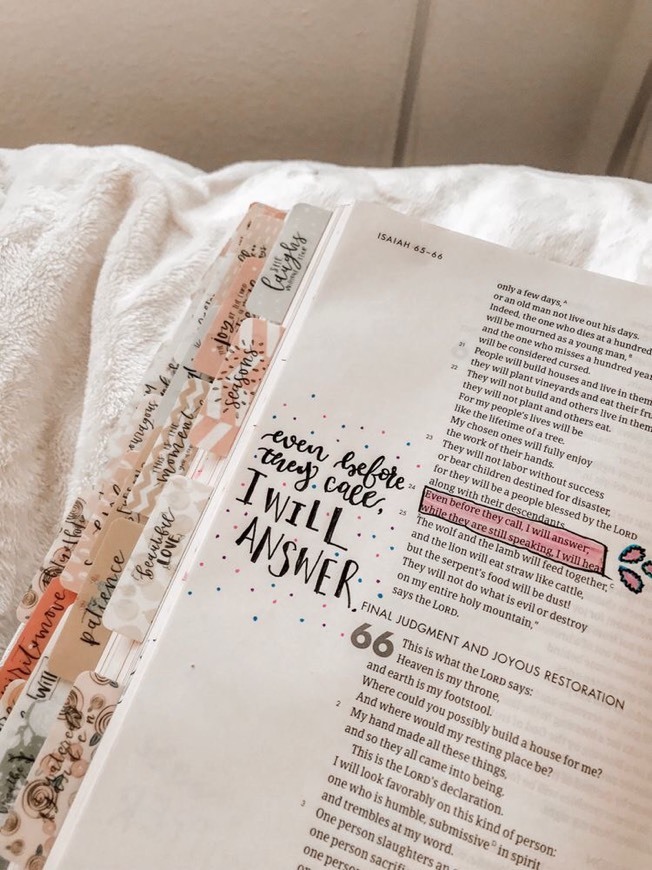 ISAIAH 65–66
live
laughs
without
joy
seasons
moment
beautiful
LOVE
patience
courageous
will move
I will
even before
they call,
I WILL
ANSWER.
only a few days,ᴬ
or an old man not live out his days.
Indeed, the one who dies at a hundred
will be mourned as a young man,ᴮ
and the one who misses a hundred years
will be considered cursed.
21 People will build houses and live in them
22 they will plant vineyards and eat their
They will not build and others live in them
they will not plant and others eat.
For my people's lives will be
like the lifetime of a tree.
My chosen ones will fully enjoy
the work of their hands.
23 They will not labor without success
or bear children destined for disaster,
for they will be a people blessed by the LORD
along with their descendants.
24 Even before they call, I will answer;
while they are still speaking, I will hea
25 The wolf and the lamb will feed together,
and the lion will eat straw like cattle,ᶜ
but the serpent's food will be dust!
They will not do what is evil or destroy
on my entire holy mountain,"
says the LORD.
FINAL JUDGMENT AND JOYOUS RESTORATION
66 This is what the LORD says:
Heaven is my throne,
and earth is my footstool.
Where could you possibly build a house for me?
And where would my resting place be?
2 My hand made all these things,
and so they all came into being.
This is the LORD's declaration.
I will look favorably on this kind of person:
one who is humble, submissiveᴰ in spirit
and trembles at my word.
3 One person slaughters an
one person sacrifi
one pers